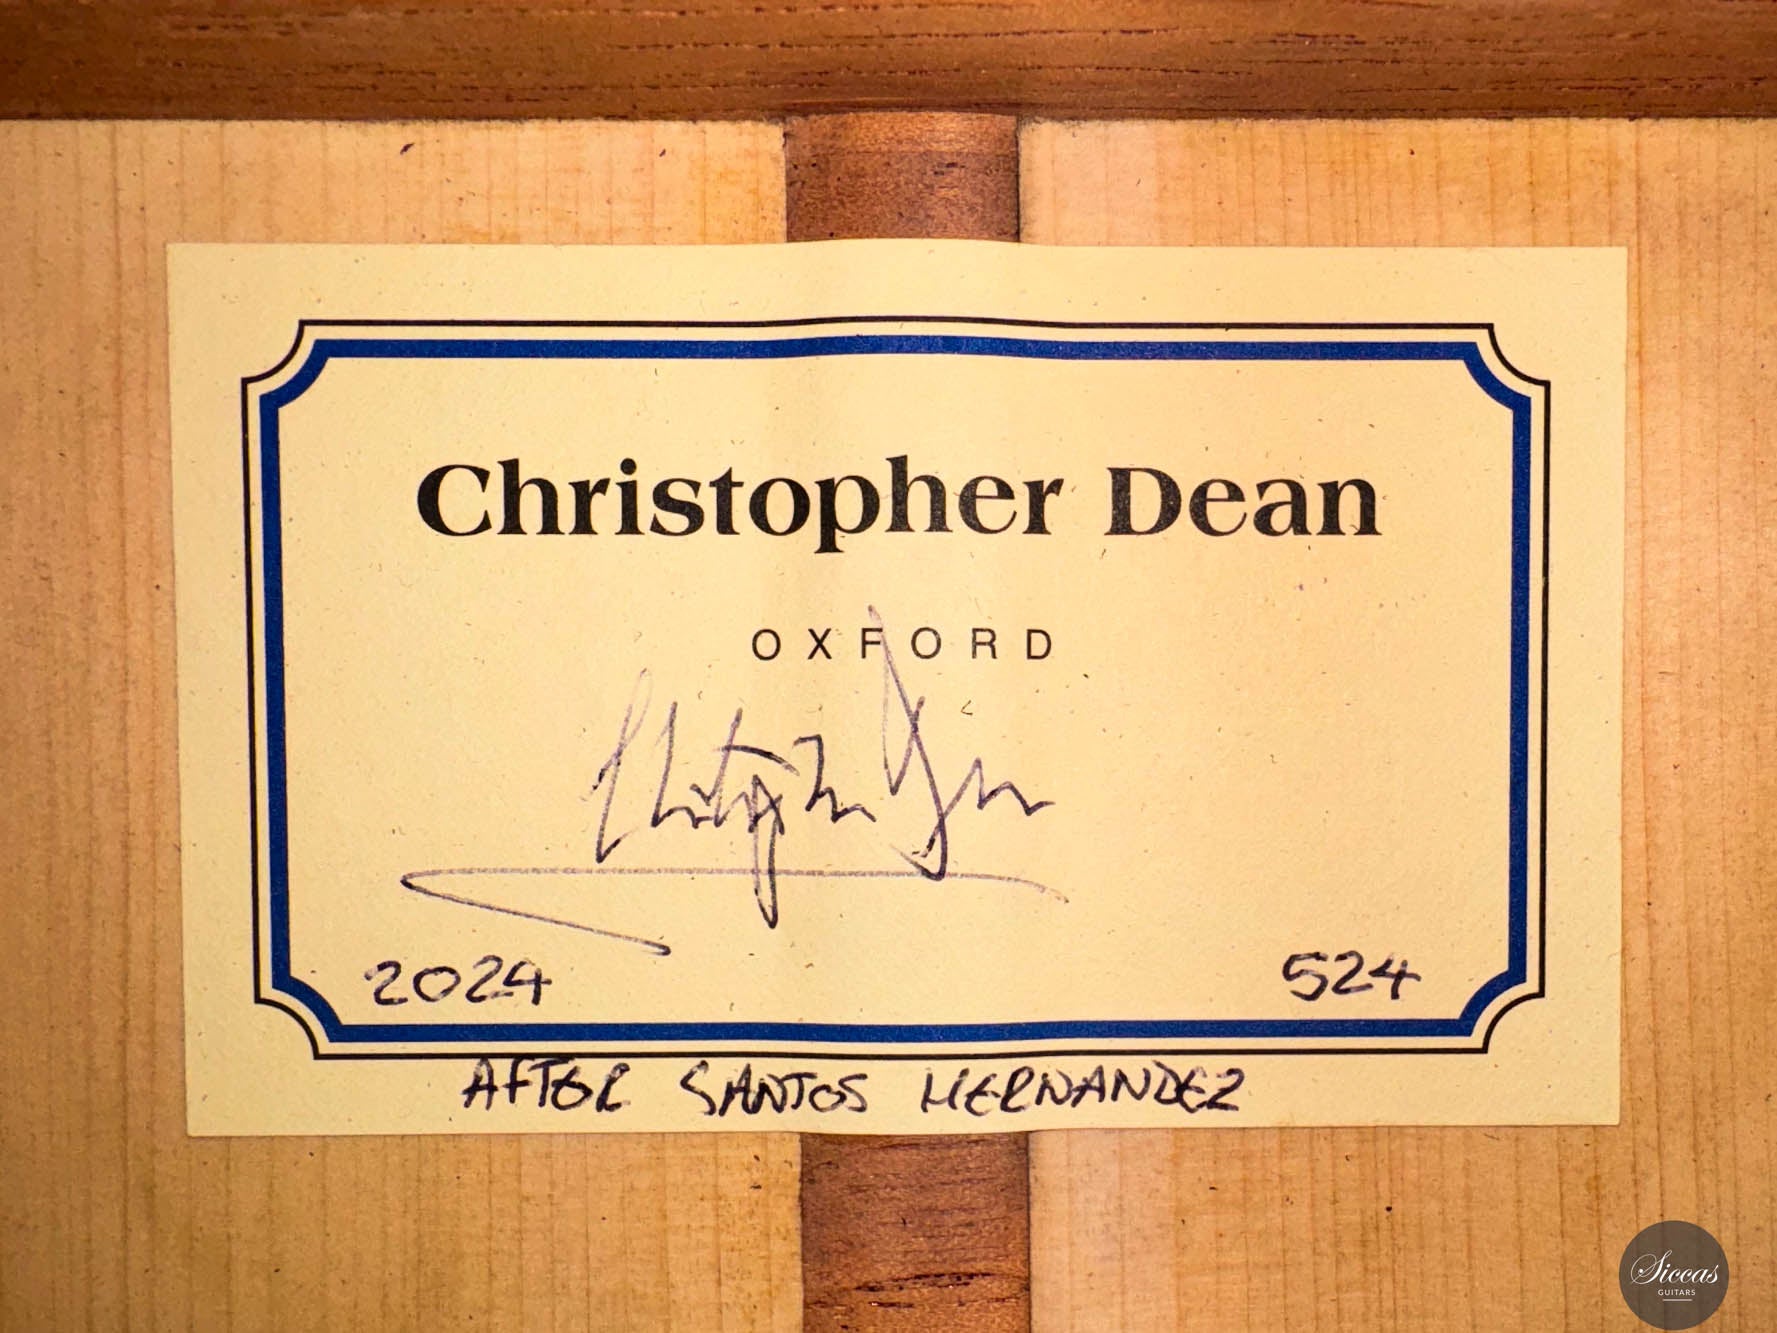 Christopher Dean
OXFORD
Christopher Dean
2024
524
AFTER SANTOS HERNANDEZ
Siccas
GUITARS